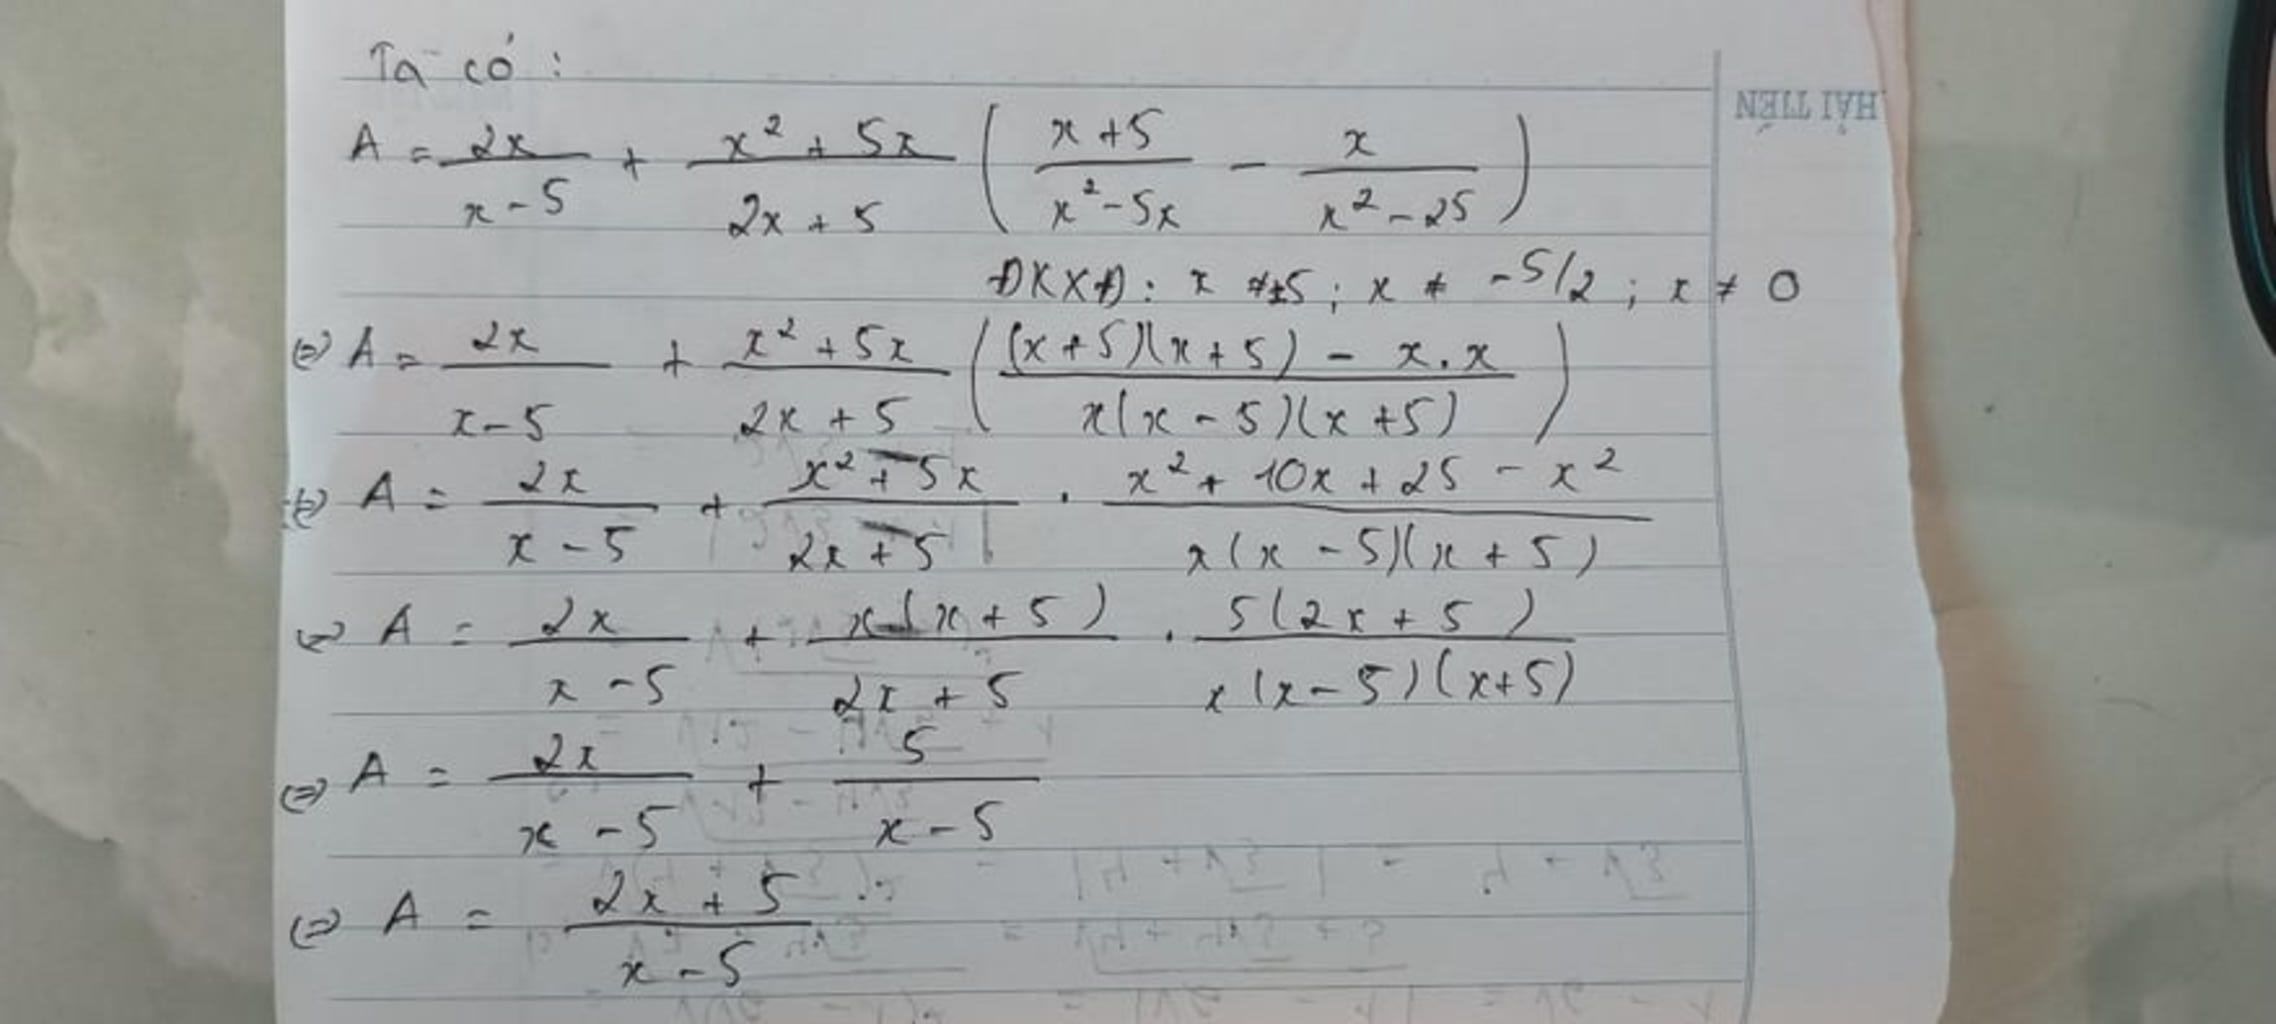 Ta có :
A = \frac{2x}{x-5} + \frac{x^2+5x}{2x+5} \left( \frac{x+5}{x^2-5x} - \frac{x}{x^2-25} \right)
ĐKXĐ : x ≠ ±5 ; x ≠ -5/2 ; x ≠ 0
⇔ A = \frac{2x}{x-5} + \frac{x^2+5x}{2x+5} \left( \frac{(x+5)(x+5) - x.x}{x(x-5)(x+5)} \right)
⇔ A = \frac{2x}{x-5} + \frac{x^2+5x}{2x+5} . \frac{x^2+10x+25-x^2}{x(x-5)(x+5)}
⇔ A = \frac{2x}{x-5} + \frac{x(x+5)}{2x+5} . \frac{5(2x+5)}{x(x-5)(x+5)}
⇔ A = \frac{2x}{x-5} + \frac{5}{x-5}
⇔ A = \frac{2x+5}{x-5}
HẢI TIẾN